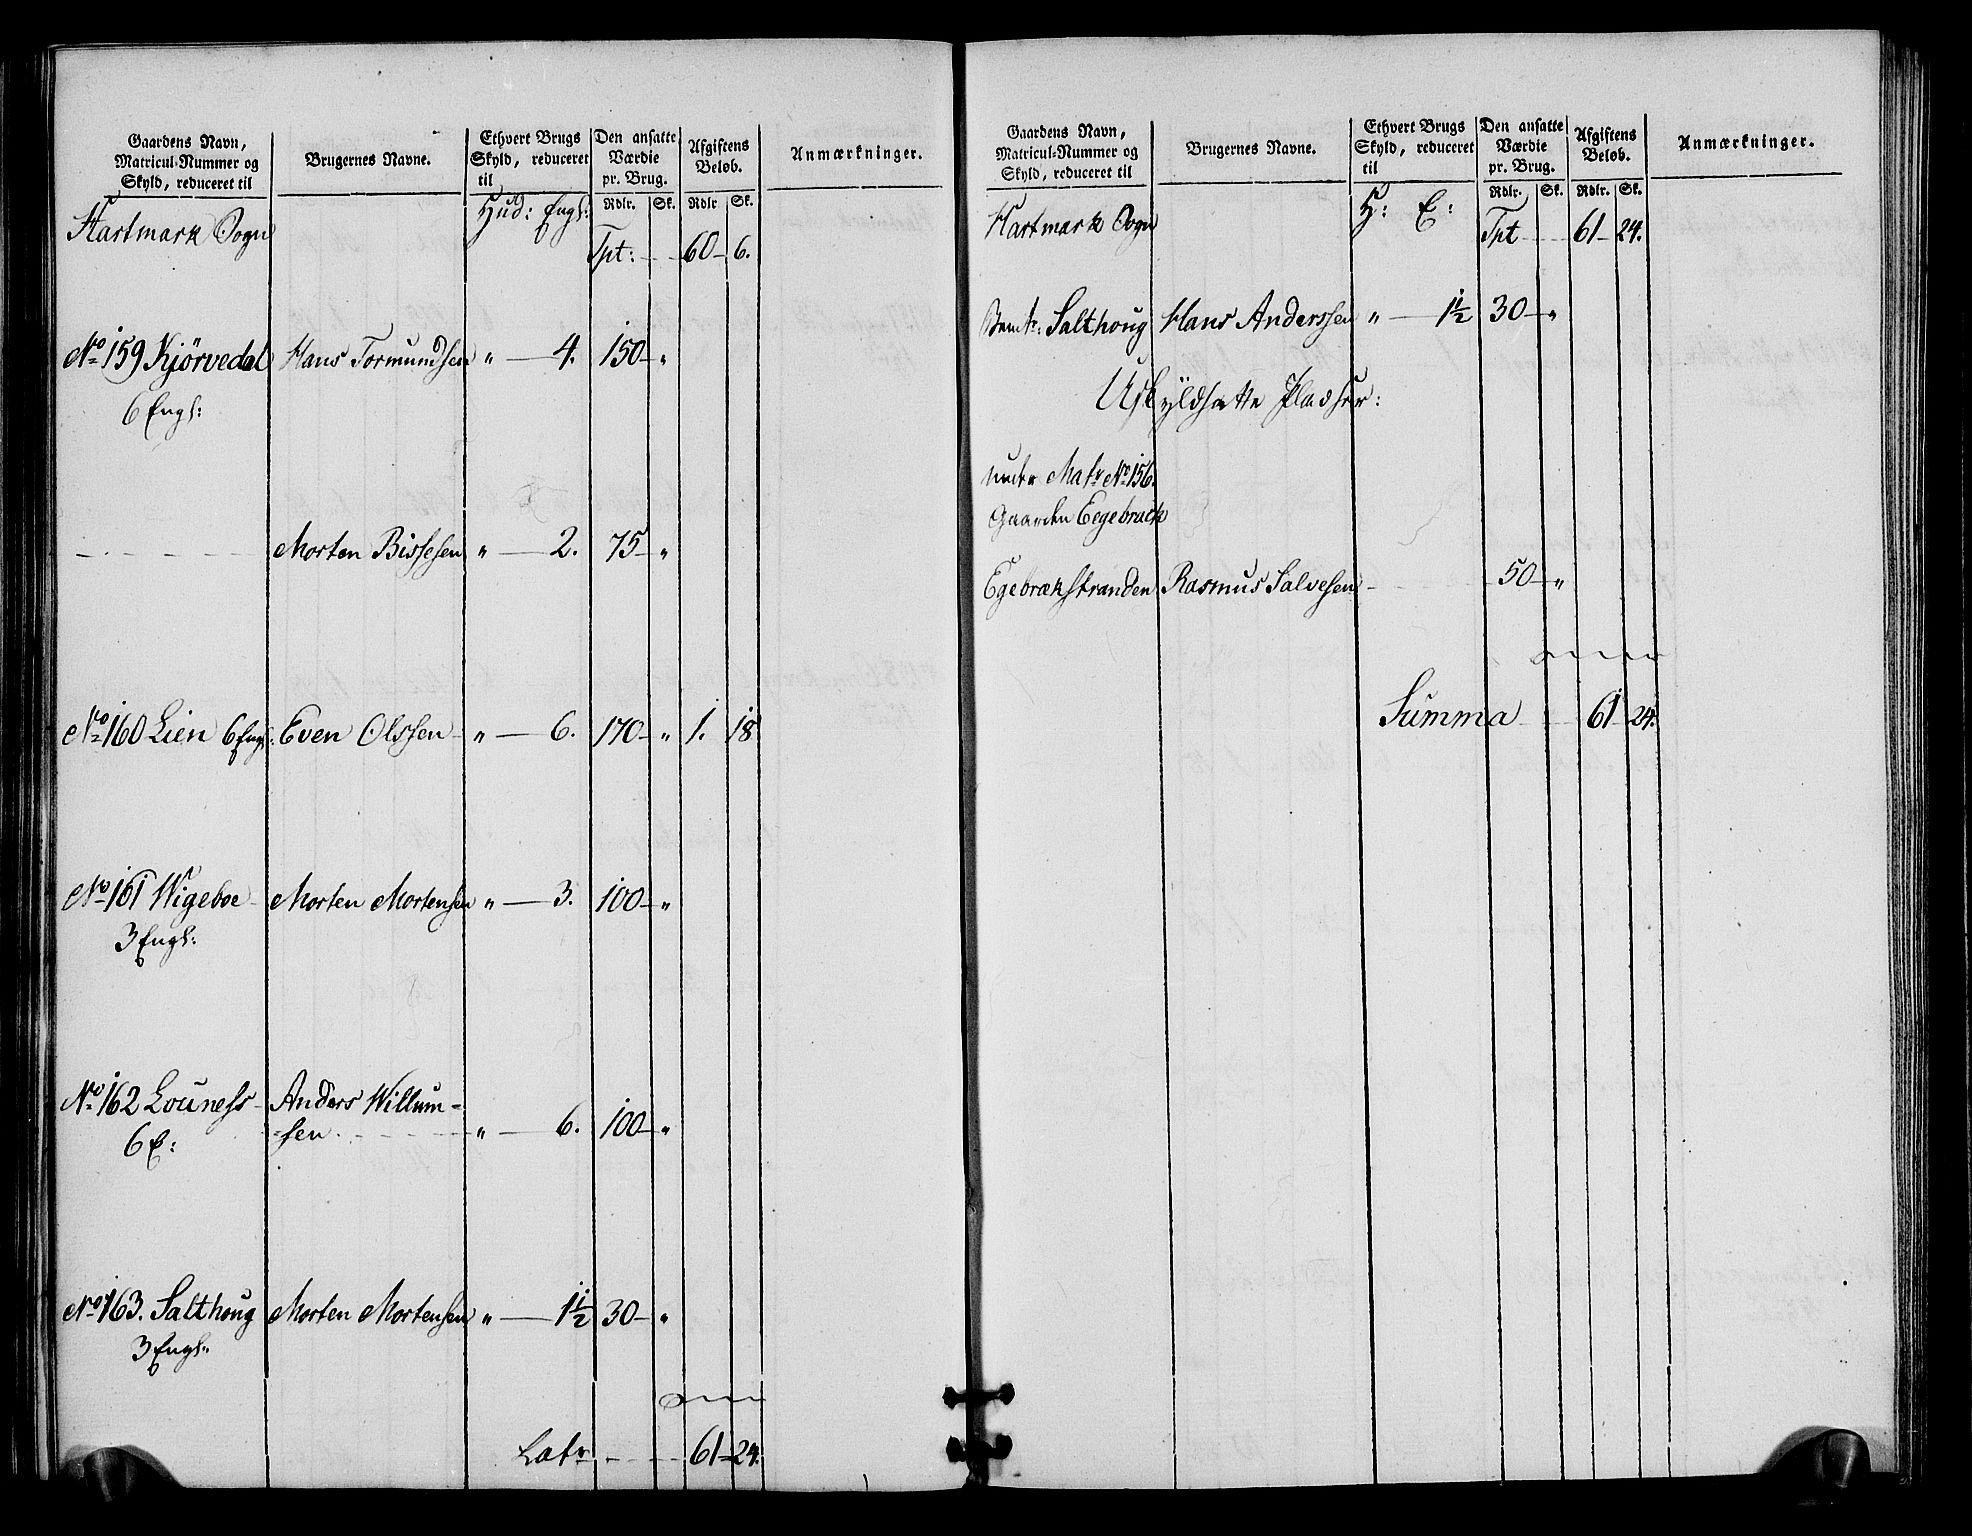 Gaardens Navn, Matricul-Nummer og Skyld, reduceret til
Brugernes Navne.
Ethvert Brugs Skyld, reduceret til
Den ansatte Værdie pr. Brug.
Afgiftens Beløb.
Anmærkninger.
Rdlr. Sk. Rdlr Sk.
Hartmark Sogn Hud: Engl:
Tpt: 60 6.
No 159 Kjörvedal Hans Tormundsen " 4. 150 "
6 Engl:
Morten Bissesen " 2. 75 "
No 160 Lien 6 Engl: Even Olssen " 6. 170 " 1. 18
No 161 Wigeboe Morten Mortensen " 3. 100 "
3 Engl:
No 162 Louness Anders Willum-
6 E: =sen " 6. 100 "
No 163. Salthoug Morten Mortensen " 1½ 30 "
3 Engl:
Latr 61 24.
Gaardens Navn, Matricul-Nummer og Skyld, reduceret til
Brugernes Navne.
Ethvert Brugs Skyld, reduceret til
Den ansatte Værdie pr. Brug.
Afgiftens Beløb.
Anmærkninger.
Rdlr. Sk. Rdlr. Sk.
Hartmark Sogn H: E:
Tpt 61 24.
Salthoug Hans Anderssen " 1½ 30 "
Uskyldsatte Pladser:
under Matr No 156.
Gaarden Eegebræk
Egebrækstranden Rasmus Salvesen 50 "
Summa 61 24.